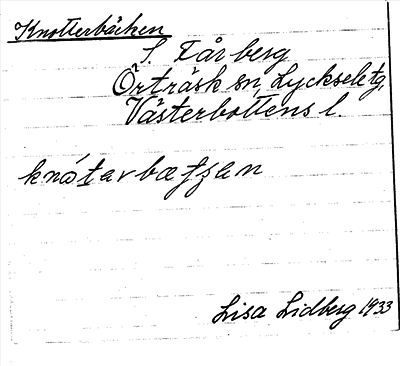 Knotterbäcken
S. Tårberg
Örträsk sn, Lycksele tg,
Västerbottens l.
knótarbætʂen
Lisa Lidberg 1933